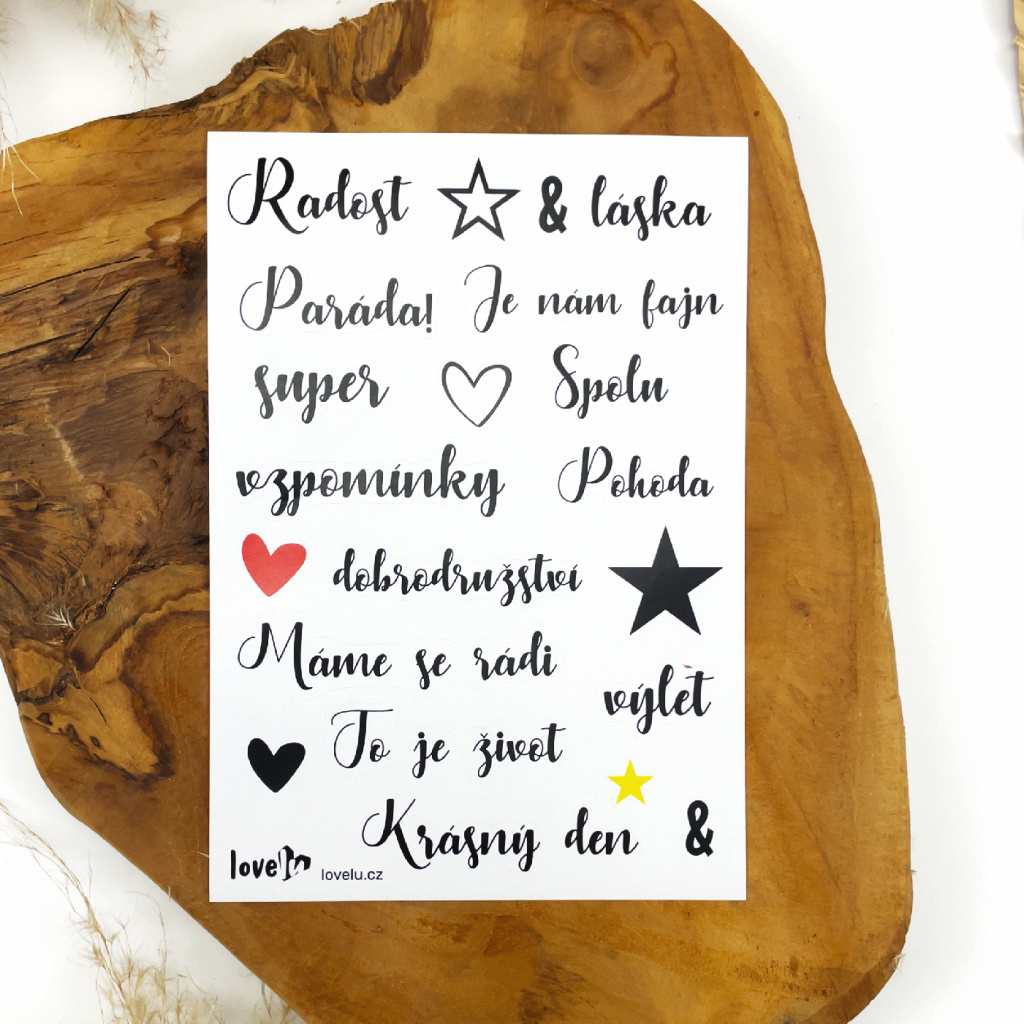 Radost & láska
Paráda! Je nám fajn
super Spolu
vzpomínky Pohoda
dobrodružství
Máme se rádi
výlet
To je život
Krásný den &
lovelu lovelu.cz